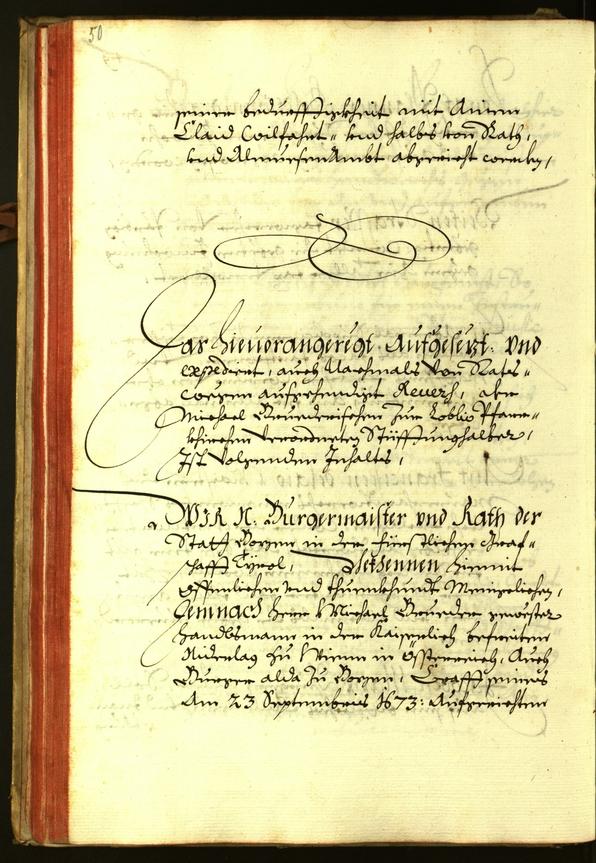 50
seiner beduerfftigkheit mit Ainem
Claid Willfahrt, und halbs von Rath,
und Almuesen Ambt abgereicht worden,
Das hievorangeregt Aufgesezt. und
expediert, auch Nachmals von Rats-
wegen aufgehendigt Revers, aber
Michael zur Löbl: Pfarr-
khirchen verordneten Stüfftungshalber,
Ist volgenden Inhalts,
WIR N. Burgermaister und Rath der
Statt Bozen in der Fürstlichen Graf-
schafft Tyrol, Bekhennen hiemit
offentlichen und thuen khundt Meniglichen,
Demnach herr Michael gewester
Handlsmann in der Kaiserlich befreiten
Niderlag zu Wienn in Össterreich, Auch
Burger alda zu Bozen, Crafft seines
Am 23 Septembris 1673: Aufgerichten